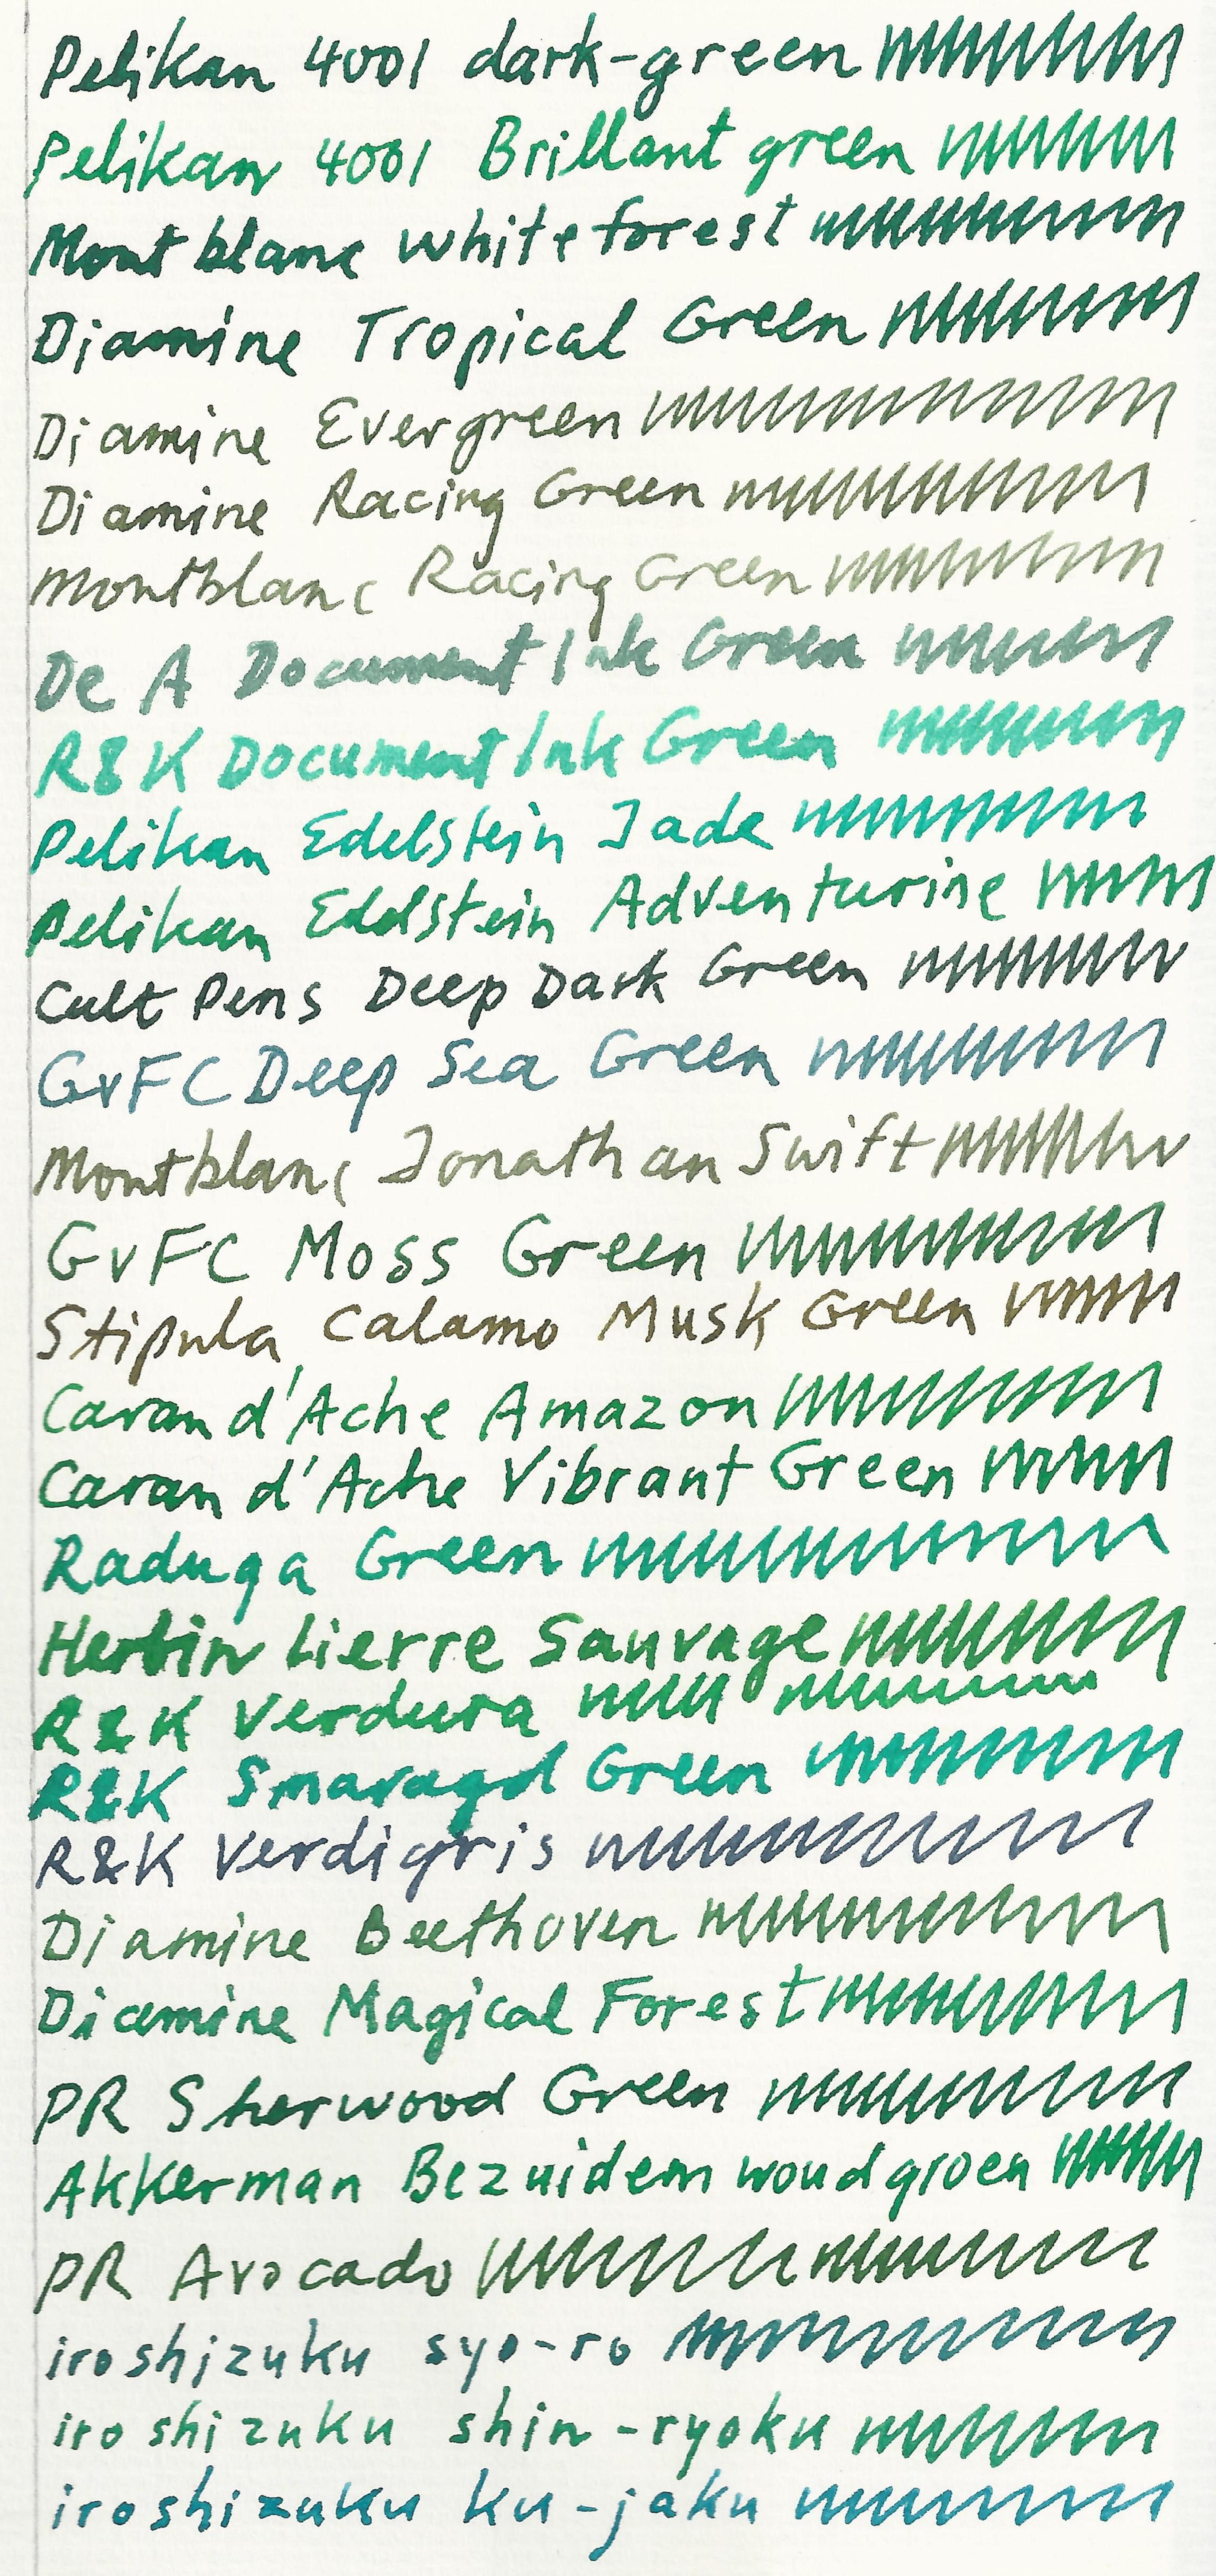 Pelikan 4001 dark-green
Pelikan 4001 Brillant green
Montblanc white forest
Diamine Tropical Green
Diamine Evergreen
Diamine Racing Green
Montblanc Racing Green
De A Document Ink Green
R&K Document Ink Green
Pelikan Edelstein Jade
Pelikan Edelstein Adventurine
Cult Pens Deep Dark Green
GvFC Deep Sea Green
Montblanc Jonathan Swift
GvFC Moss Green
Stipula Calamo Musk Green
Caran d'Ache Amazon
Caran d'Ache Vibrant Green
Raduga Green
Herbin Lierre Sauvage
R&K Verdura
R&K Smaragd Green
R&K Verdigris
Diamine Beethoven
Diamine Magical Forest
PR Sherwood Green
Akkerman Bezuidenwoudgroen
PR Avocado
iroshizuku syo-ro
iroshizuku shin-ryoku
iroshizuku ku-jaku